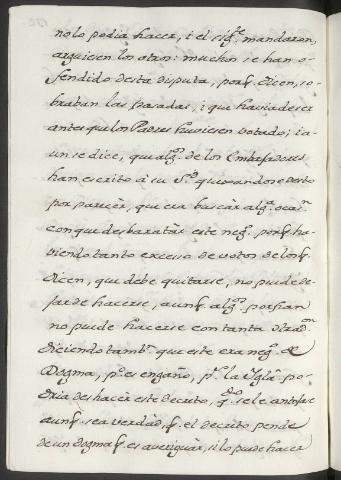 no lo podia hacer, i el sig.te mandaron,
arguiesen los otros: muchos se han o-
fendido desta disputa, porq. dicen, so-
braban las pasadas, i que havia de ser
antes que los Padres huviesen votado; i a-
un se dice, que alg.s de los Embajadores
han escrito à su S.d quejandose desto
por parecèr, que era buscàr alg.a ocas.n
con que desbaratàr este neg.o porq. ha-
viendo tanto exceso de votos de los q.
dicen, que debe quitarse, no puede de-
jar de hacerse, aunq. alg.s porfian
no puede hacerse con tanta
diciendo tamb.n que este era neg.o de
Dogma, p.o es engaño, p.s la Igl.a po-
dria deshacer este decreto, q.do se le antojase
aunq. sea verdàd, q. el decreto pende
de un dogma q. es averiguàr, si lo puede hacer